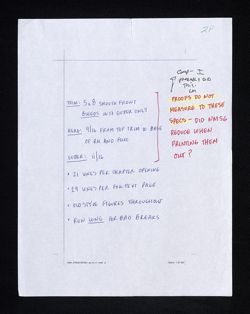 28
TRIM: 5x8 SMOOTH FRONT
BLEEDS INTO GUTTER ONLY
HEAD: 9/16 FROM TOP TRIM TO BASE
OF RH AND FOLIO
GUTTER: 11/16
• 21 LINES PER CHAPTER OPENING
• 29 LINES PER FULL TEXT PAGE
• OLD STYLE FIGURES THROUGHOUT
• RUN LONG FOR BAD BREAKS
Comp - I
PROOFS DO NOT
MEASURE TO THESE
SPECS - DID
REDUCE WHEN
PRINTING THEM
OUT?